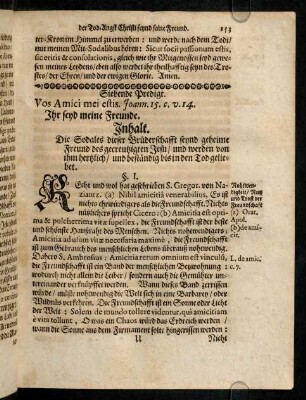 der Tod-Angst Christi seynd seine Freund. 153
ter-Kron im Himmel zu erwerben: und werde nach dem Todt/
nur meinen Mit-Sodalibus hören: Sicut socii passionum estis,
sic eritis & consolationis, gleich wie ihr Mitgenossen seyd gewe-
sen meines Leydens/eben also werdet ihr theilhafftig seyn des Tro-
stes/ der Ehren/ und der ewigen Glorie. Amen.
Siebende Predigt.
Vos Amici mei estis. Joann. 15. c. v. 14.
Ihr seyd meine Freunde.
Inhalt.
Die Sodales dieser Bruderschafft seynd geheime
Freund des gecreutzigten JEsu/ und werden von
ihm hertzlich/ und beständig bis in den Tod gelie-
bet.
§. I.
Recht und wol hat geschrieben S. Gregor. von Na-
zianz. (a) Nihil amicitiâ venerabilius, Es ist
nichts ehrwürdigers als die Freundschafft. Nichts
nützlichers spricht Cicero: (b) Amicitia est opti-
ma & pulcherrima vitæ supellex, die Freundschafft ist der beste
und schönste Haußraht des Menschen. Nichts nohtwendigers:
Amicitia ad usum vitæ necessaria maximè, die Freundschafft ist
zum Gebrauch des menschlichen Lebens überauß nothwendig.
Dahero S. Ambrosius: Amicitia rerum omnium est vinculum,
die Freundschafft ist ein Band der menschlichen Beywohnung
wodurch nicht allein die Leiber/ sondern auch die Gemühter un-
tereinander verknüpffet werden. Wann dieses Band zerrissen
würde/ müste nohtwendig die Welt sich in eine Barbarey/ oder
Wildnüs verkehren. Die Freundschafft ist ein Sonne oder Liecht
der Welt: Solem de mundo tollere videntur, qui amicitiam
è vita tollunt, O was ein Chaos würd das Erdreich werden/
wann die Sonne aus dem Firmament solte hingerissen werden:
U Nicht
Nohtwen-
digkeit/ Nutz
und Krafft der
Freundschafft
(a) Orat.
Apol.
(b) de ami-
cit.
L. de amic.
c. 7.